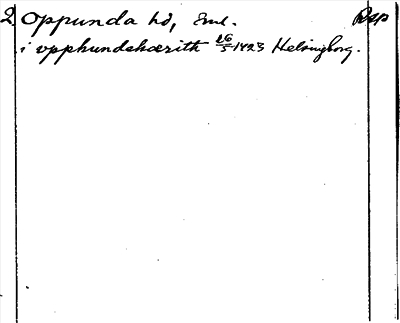 2 Oppunda hd, Sml. Rsp
i vpphundahærith 26/5 1423 Helsingborg.